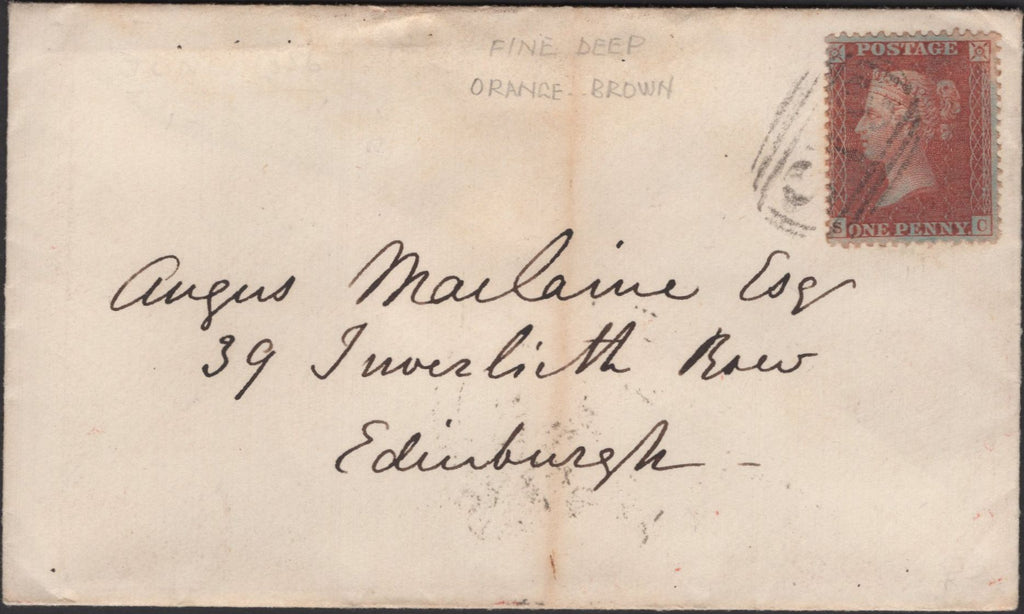 FINE DEEP
ORANGE-BROWN
POSTAGE
S ONE PENNY. C
Angus Maclaine Esqr
39 Inverlieth Row
Edinburgh -